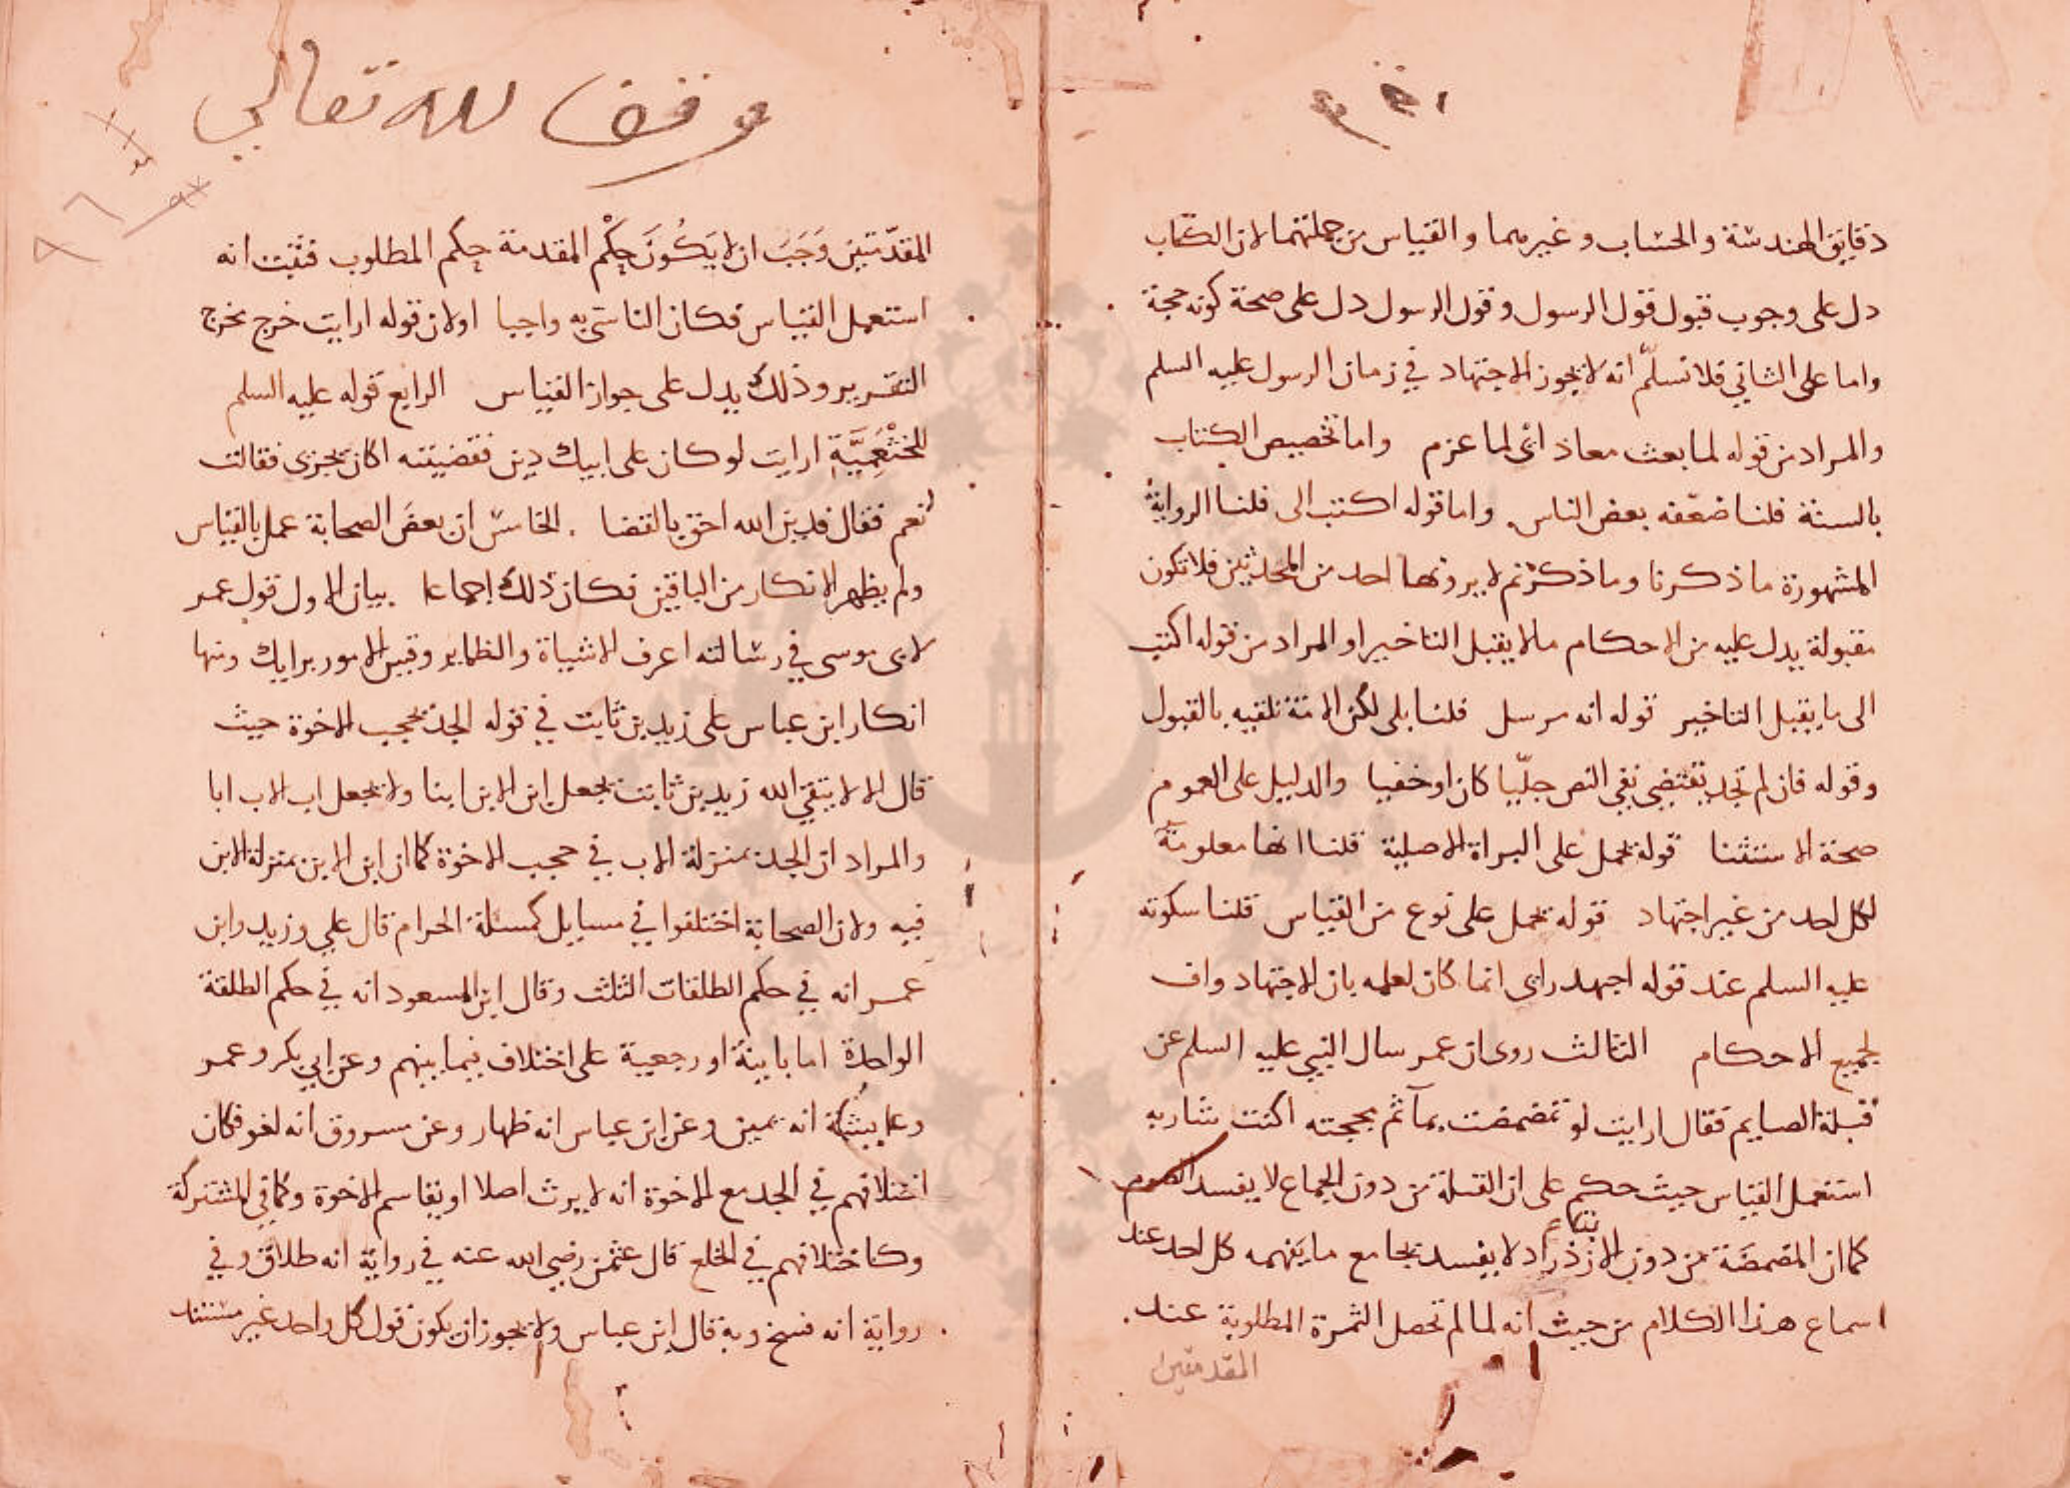 دقايق الهندسة والحساب وغيرهما والقياس من جملتهما لان الكتاب
دل على وجوب قبول قول الرسول وقول الرسول دل على صحة كونه حجة
واما على الثاني فلا نسلّم انه لا يجوز الاجتهاد في زمان الرسول عليه السلم
والمراد من قوله لما بعث معاذ اى لما عزم واما تخصيص الكتاب
بالسنة قلنا ضعّفه بعض الناس واما قوله اكتب الى قلنا الرواية
المشهورة ما ذكرنا وما ذكرتم لا يرويها احد من المحدثين فلا تكون
مقبولة يدل عليه من الاحكام ما لا يقبل التاخير او المراد من قوله اكتب
الى ما يقبل التاخير قوله انه مرسل قلنا بلى لكن الامة تلقيه بالقبول
وقوله فان لم تجد يقتضى نفى النص جليّا كان او خفيا والدليل على العموم
صحة الاستثنا قوله يحمل على البراة الاصلية قلنا انها معلومة
لكل احد من غير اجتهاد قوله يحمل على نوع من القياس قلنا سكوته
عليه السلم عند قوله اجهد راى انما كان لعلمه بان الاجتهاد واف
بجميع الاحكام الثالث روى ان عمر سال النبي عليه السلم عن
قبلة الصايم فقال ارايت لو تمضمضت بمآ ثم مججته اكنت شاربه
استعمل القياس حيث حكم على ان القبلة من دون الجماع لا يفسد الصوم
كما ان المضمضة من دون الازدراد لا يفسد بجامع ما يفهمه كل احد عند
اسماع هذا الكلام من حيث انه لما لم تحصل الثمرة المطلوبة عند
المقدمتين
وقف لله تعالى
المقدّمتين وَجَبَ ان لا يَكُونَ حكْم المقدمة حكم المطلوب فثبت انه
استعمل القياس فكان التاسّى به واجبا او لان قوله ارايت خرج مخرج
التقرير وذلك يدل على جواز القياس الرابع قوله عليه السلم
للخثْعَمِيَّةِ ارايت لو كان على ابيك دين فقضيته اكان يجزى فقالت
نعم فقال فدين الله احق بالقضا الخامس ان بعض الصحابة عمل بالقياس
ولم يظهر الانكار من الباقين فكان ذلك إجماعا بيان الاول قول عمر
لابى موسى في رسالته اعرف الاشباة والنظاير وقيس الامور برايك ومنها
انكار ابن عباس على زيد بن ثابت في قوله الجد لا يحجب الاخوة حيث
قال الا لا يتقي الله زيد بن ثابت يجعل ابن الابن ابنا ولا يجعل اب الاب ابا
والمراد ان الجد بمنزلة الاب في حجب الاخوة كما ان ابن الابن بمنزلة الابن
فيه ولان الصحابة اختلفوا في مسايل كمسئلة الحرام قال علي وزيد وابن
عمر انه في حكم الطلقات الثلث وقال ابن المسعود انه في حكم الطلقة
الواحدة اما باينة او رجعية على اختلاف فيما بينهم وعن ابي بكر وعمر
وعايشة انه يمين وعن ابن عباس انه ظهار وعن مسروق انه لغو فكان
اختلافهم في الجد مع الاخوة انه لا يرث اصلا او يقاسم الاخوة وكما في المشتركة
وكاختلافهم في الخلع قال عثمن رضي الله عنه في رواية انه طلاق وفي
رواية انه فسخ وبه قال ابن عباس ولا يجوز ان يكون قول كل واحد غير مستند